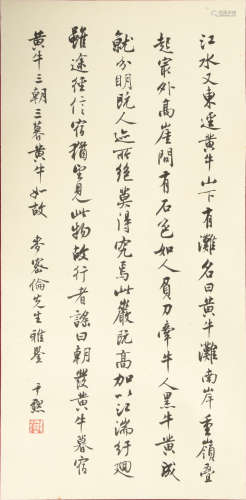 江水又東逕黃牛山下有灘名曰黃牛灘南岸重嶺疊
起冣外高崖間有石色如人負刀牽牛人黑牛黃成
就分明既人迹所絕莫得究焉此巖既高加以江湍紆迴
雖途徑信宿猶望見此物故行者謠曰朝發黃牛暮宿
黃牛三朝三暮黃牛如故 麥密倫先生雅鑒 尹默